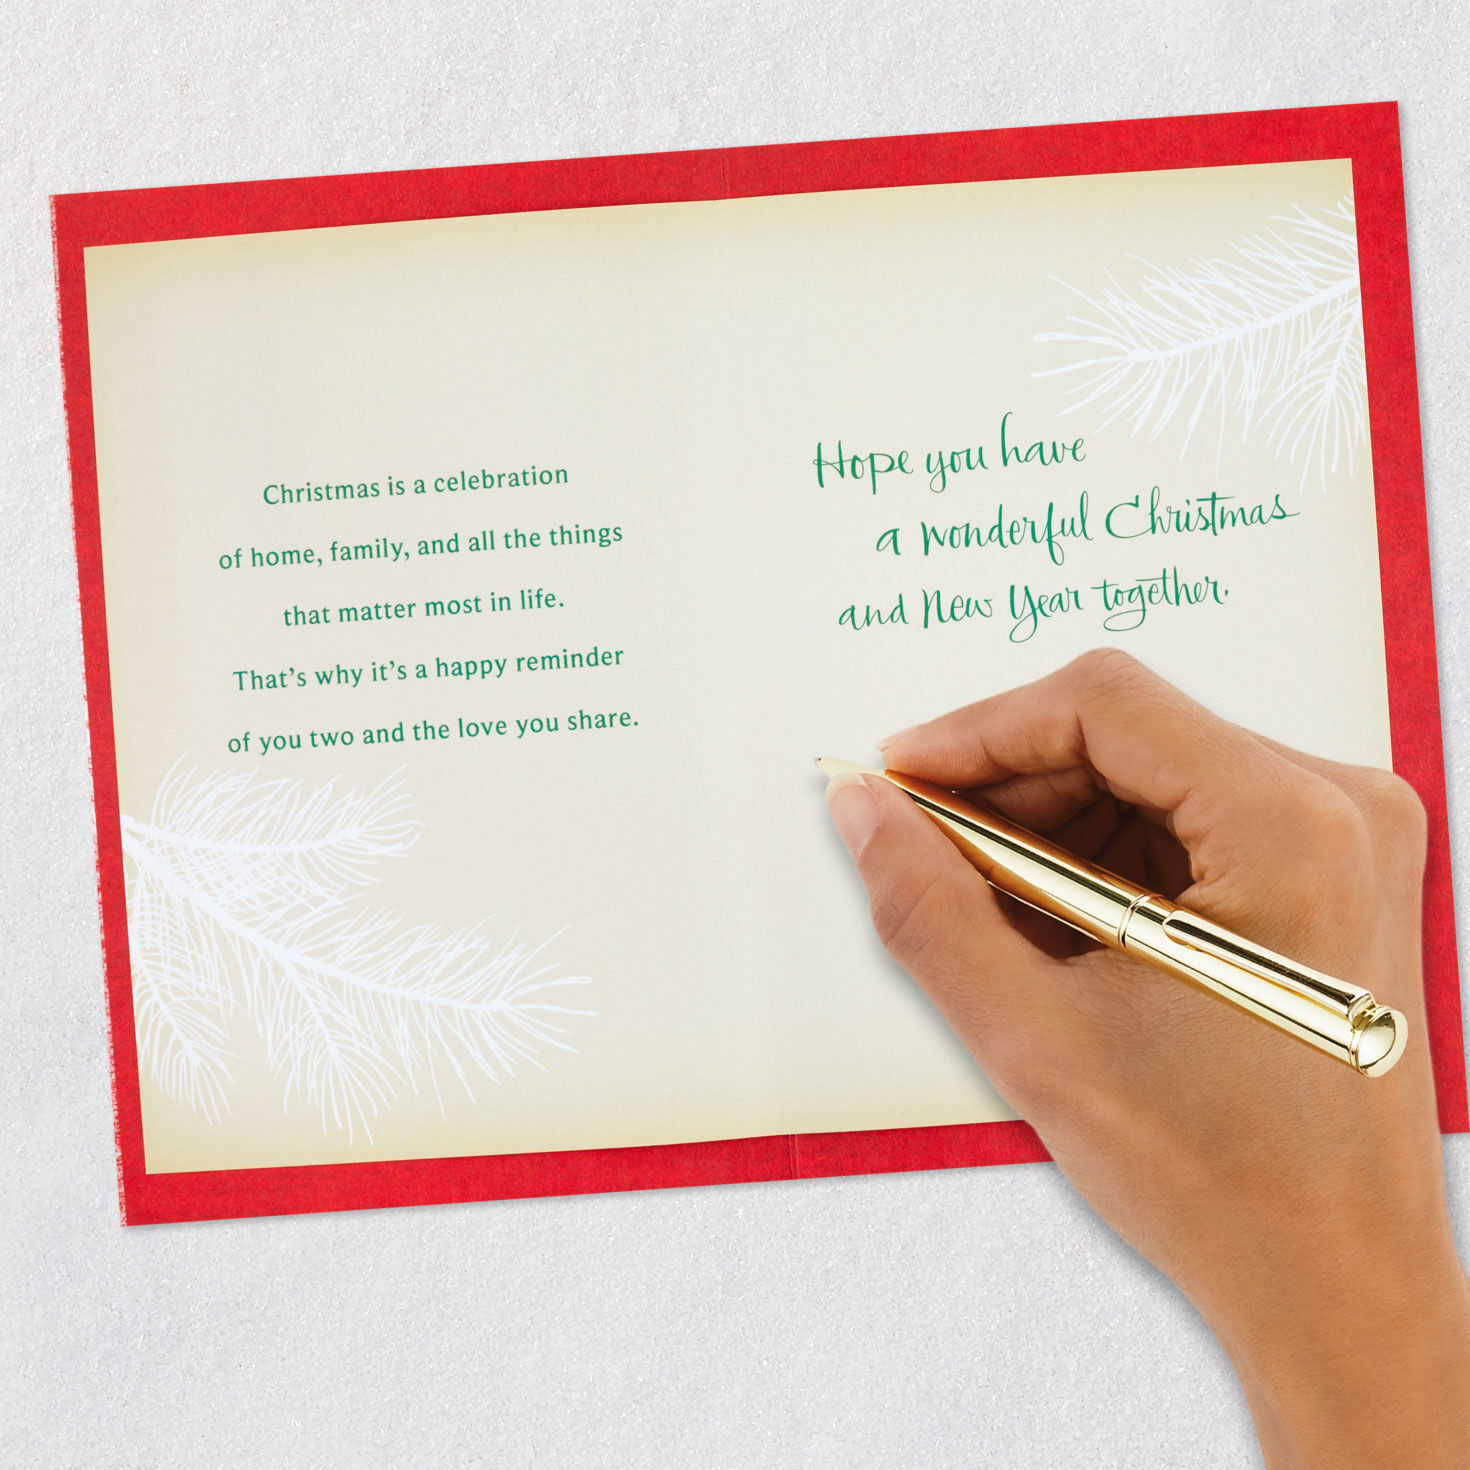 Christmas is a celebration
of home, family, and all the things
that matter most in life.
That’s why it’s a happy reminder
of you two and the love you share.
Hope you have
a wonderful Christmas
and New Year together.